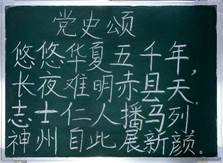 党史颂
悠悠华夏五千年，
长夜难明赤县天
志士仁人播马列
神州自此展新颜.